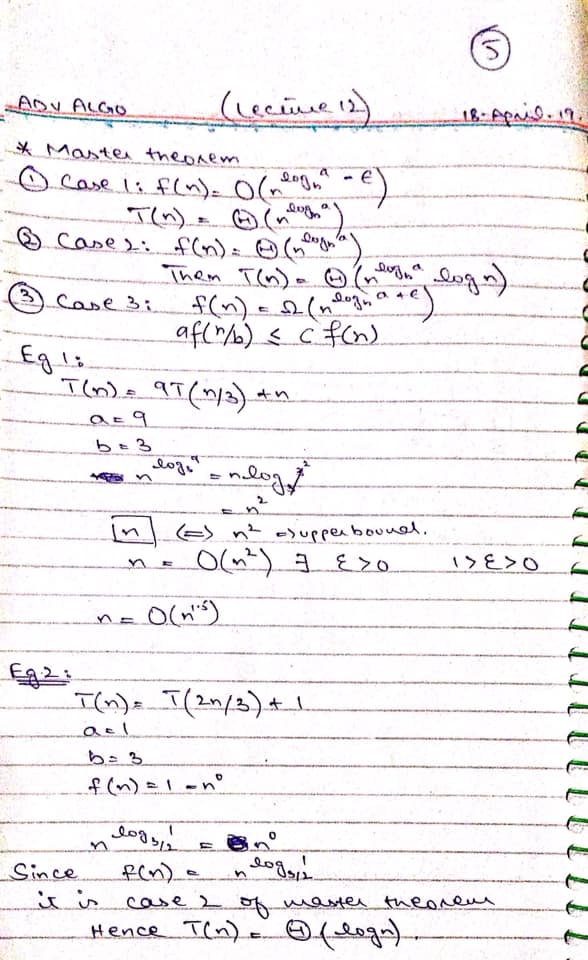 5
ADV ALGO (Lecture 12) 18-April-19
* Master theorem
① Case 1: f(n) = O(n^{log_b a - ϵ})
T(n) = Θ(n^{log_b a})
② Case 2: f(n) = Θ(n^{log_b a})
Then T(n) = Θ(n^{log_b a} log n)
③ Case 3: f(n) = Ω(n^{log_b a + ϵ})
af(n/b) ≤ c f(n)
Eg 1:
T(n) = 9T(n/3) + n
a = 9
b = 3
n^{log_b a} = n^{log_3 3^2}
= n^2
n ⇔ n^2 ⇒ upper bound.
n = O(n^2) ∃ ε>0 1>ε>0
n = O(n^{1.5})
Eg.2:
T(n) = T(2n/3) + 1
a = 1
b = 3
f(n) = 1 = n^0
n^{log_{3/2} 1} = n^0
Since f(n) = n^{log_{3/2} 1}
it is case 2 of master theorem
Hence T(n) = Θ(log n).